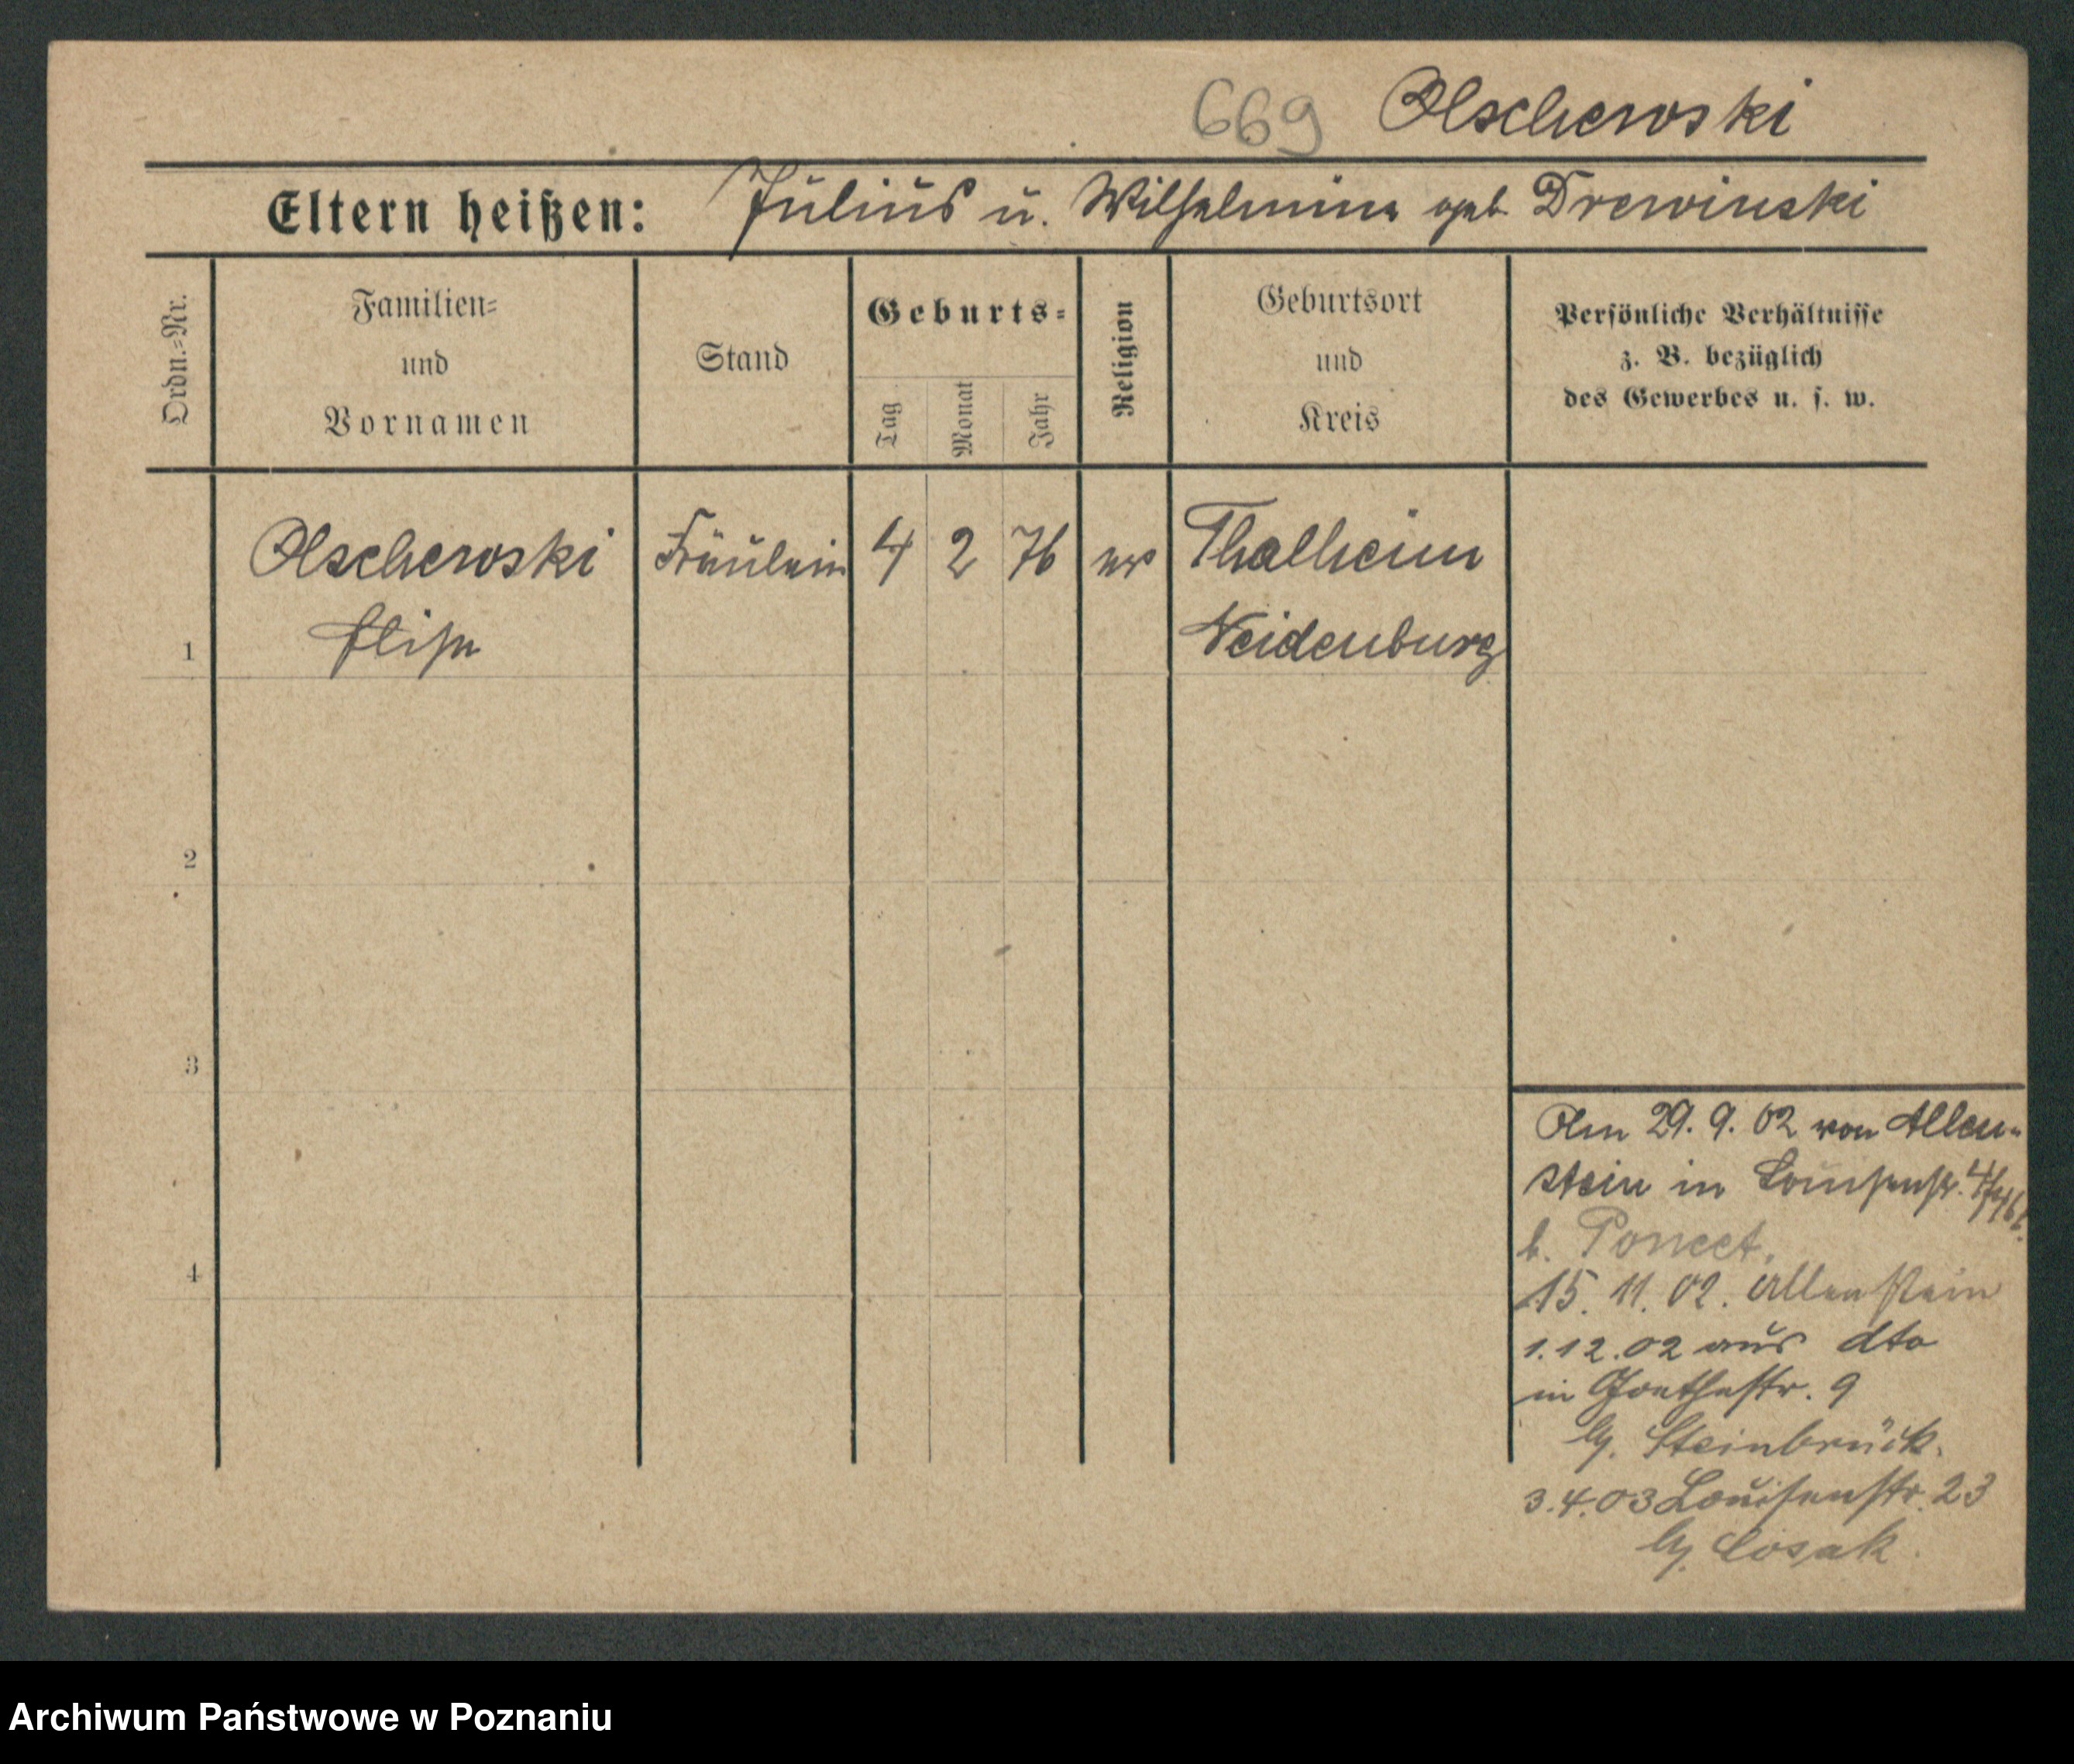 669 Olschewski
Eltern heißen: Julius u. Wilhelmine geb. Drewinski
Ordn.-Nr.
Familien-
und
Vornamen
Stand
Geburts-
Tag
Monat
Jahr
Religion
Geburtsort
und
Kreis
Persönliche Verhältnisse
z. B. bezüglich
des Gewerbes u. s. w.
1 Olschewski Fräulein 4 2 76 ev Thalheim
Elise Neidenburg
2
3
4
Am 29. 9. 02 von Allen-
stein in Louisenstr.
b. Poncet,
15. 11. 02. Allenstein
1.12.02 aus dto
in Goethestr. 9
b/. Steinbrück.
3.4.03 Louisenstr. 23
b/. Cosak.
Archiwum Państwowe w Poznaniu